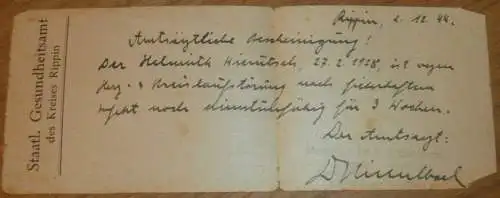 Staatl. Gesundheitsamt
des Kreises Rippin
Rippin, 2. 12. 44.
Amtsärztliche Bescheinigung!
Der Helmuth 27. 2. 1928, ist wegen
Herz- u Kreislaufstörung nach fieberhaften
Infekt noch dienstunfähig für 3 Wochen.
Der Amtsarzt: